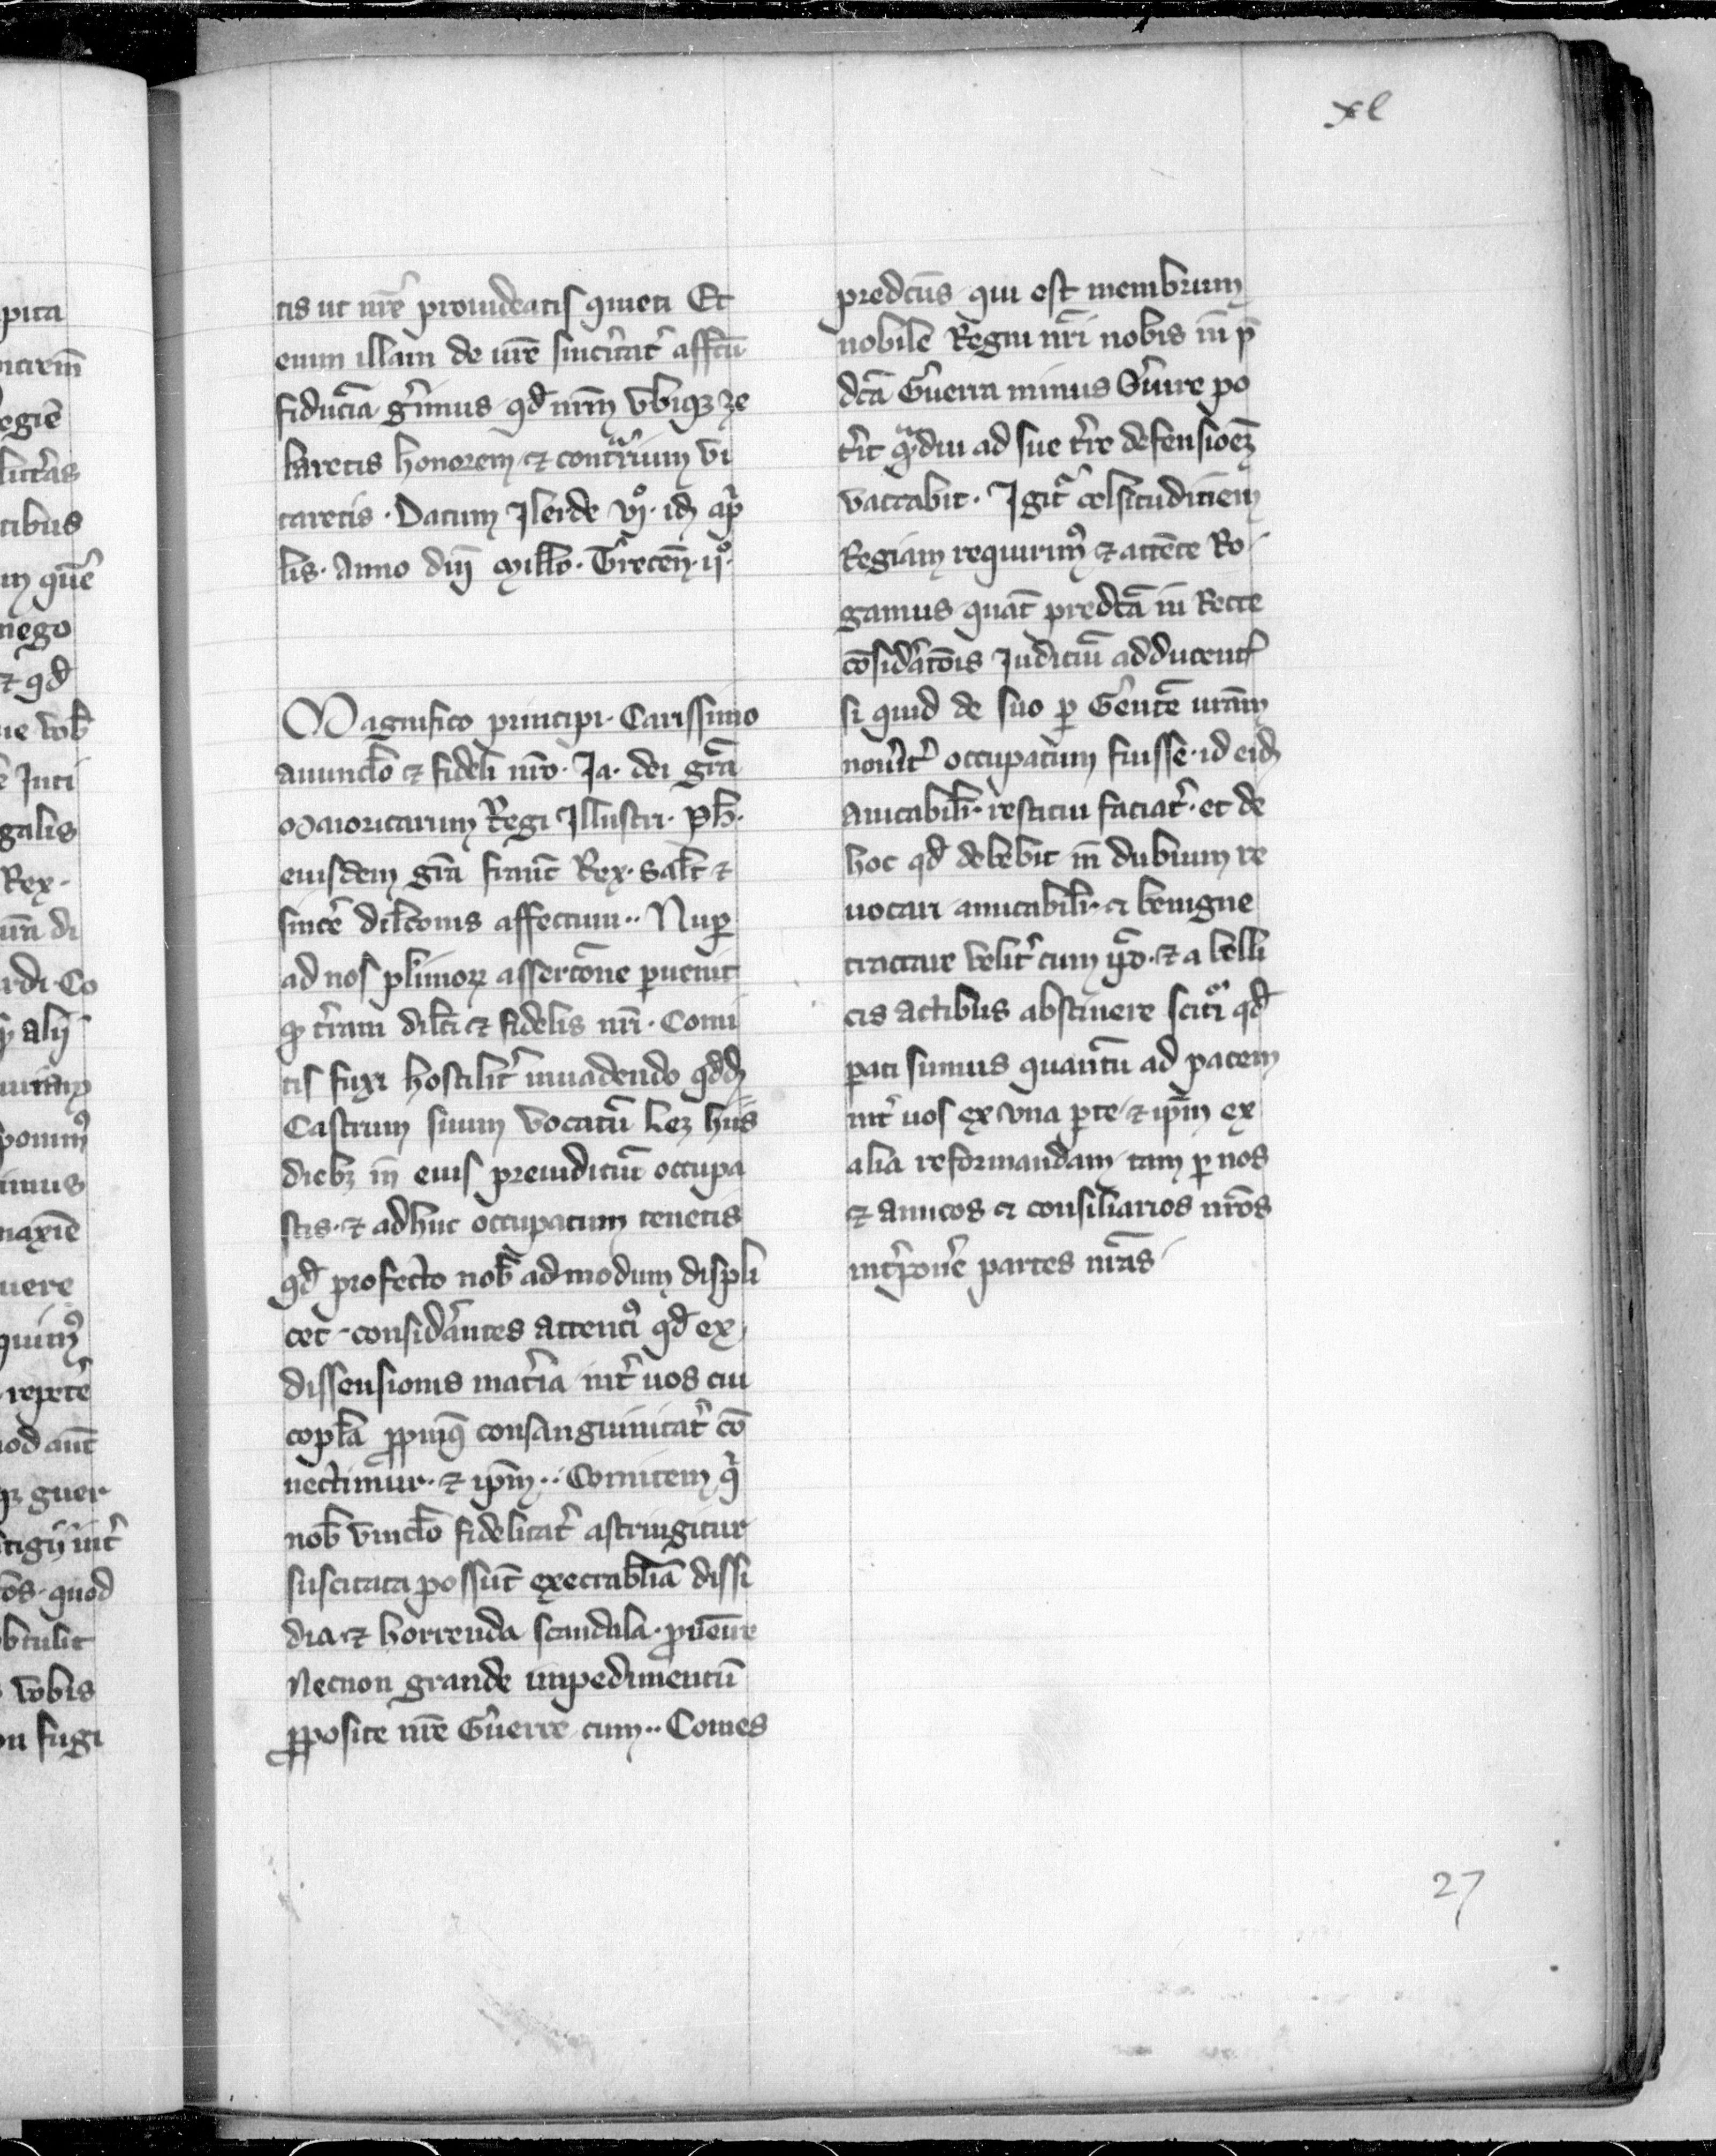 xl
tis ut nrē prouideatis quieti Et
enim illam de urē sinc̄itat̄ affc̄u
fiduciā ḡimus qd̄ nrm̄ vbiqz ze
laretis honorem ⁊ contrarium vi
taretis · Datum Jlerde vjº · id apr̄
lis · Anno dnj̄ Millo · Trecen̄ · ijº ·
Magnifico principi · Carissimo
auunclo ⁊ fideli nrō · Ja · dei grā
Maioricarum Regi Jllustri · Ph̄ ·
eiusdem grā franc̄ Rex · Salt̄ ⁊
sincē dilc̄onis affectum ·· Nup̄
ad nos plimorz assertōne puenit
qp t̄ram dilc̄i ⁊ fidelis nrī · Comi
tis fuxi hostilit̄ inuadendo qdd
Castrum suum vocatū Lez hiis
diebz in eius preiudiciū occupa
stis · ⁊ adhuc occupatum tenetis
qd̄ profecto nob̄ admodum displi
cet · considāntes attenciꝰ qd̄ ex
dissensionis mat̄ia int̄ uos cui
copla ꝓpinq̄ consanguinitat̄ cō
nectimur · ⁊ ipm̄ ·· Comitem q̄
nob̄ vinclo fidelitat̄ astringitur
suscitata possūt execrabiliā dissi
dia ⁊ horrenda scandala · ꝓuenire
Necnon grande impedimentū
ꝓposite nrē Guerre cum ·· Comes
predc̄us qui est membrum
nobile Regni nrī nobis in p̄
dc̄a Guerra minus S̄uire po
t̄it q̄diu ad sue t̄re defensioez
vaccabit · Jgit̄ celsitudinem
Regiam requirimꝰ ⁊ attēte Ro
gamus quat̄ predc̄a in Recte
cōsid̄atōis Judiciū adducent̄
si quid de suo p̄ Gentē urām
nouit̄ occupatum fuisse · id eid
amicabilī · restitui faciat̄ · et de
hoc qd̄ debebit in dubium re
uocari amicabilī · ⁊ benigne
tractare velit̄ cum ip̄o · ⁊ a belli
cis actibus abstinere scit̄i qd̄
pati sumus quantū ad pacem
int̄ uos ex vna pte ⁊ ipm̄ ex
alia reformandam tam p̄ nos
⁊ amicos ⁊ consiliarios nrōs
int̄ponē partes nrās
27